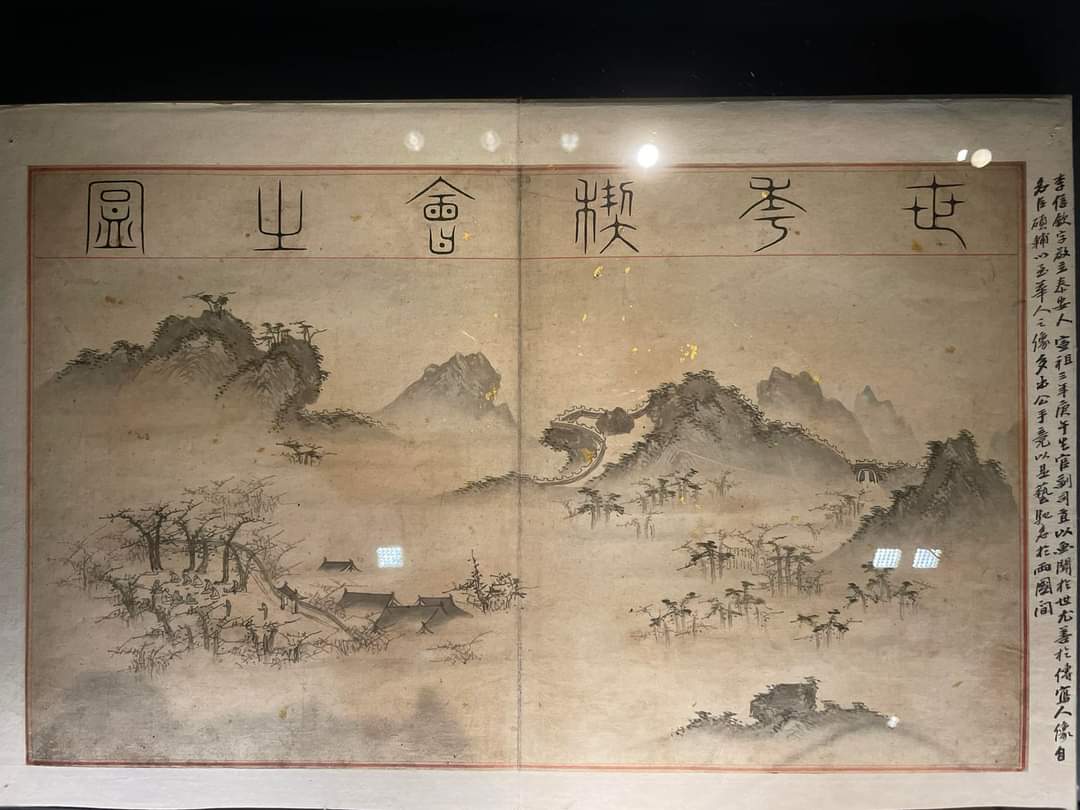 世年稧會之圖
李信欽字敬立泰安人 宣祖三年庚午生官到司直以画聞於世尤善於傳寫人像自
名臣碩輔以至華人之像多出公手竟以是藝馳名於兩國間